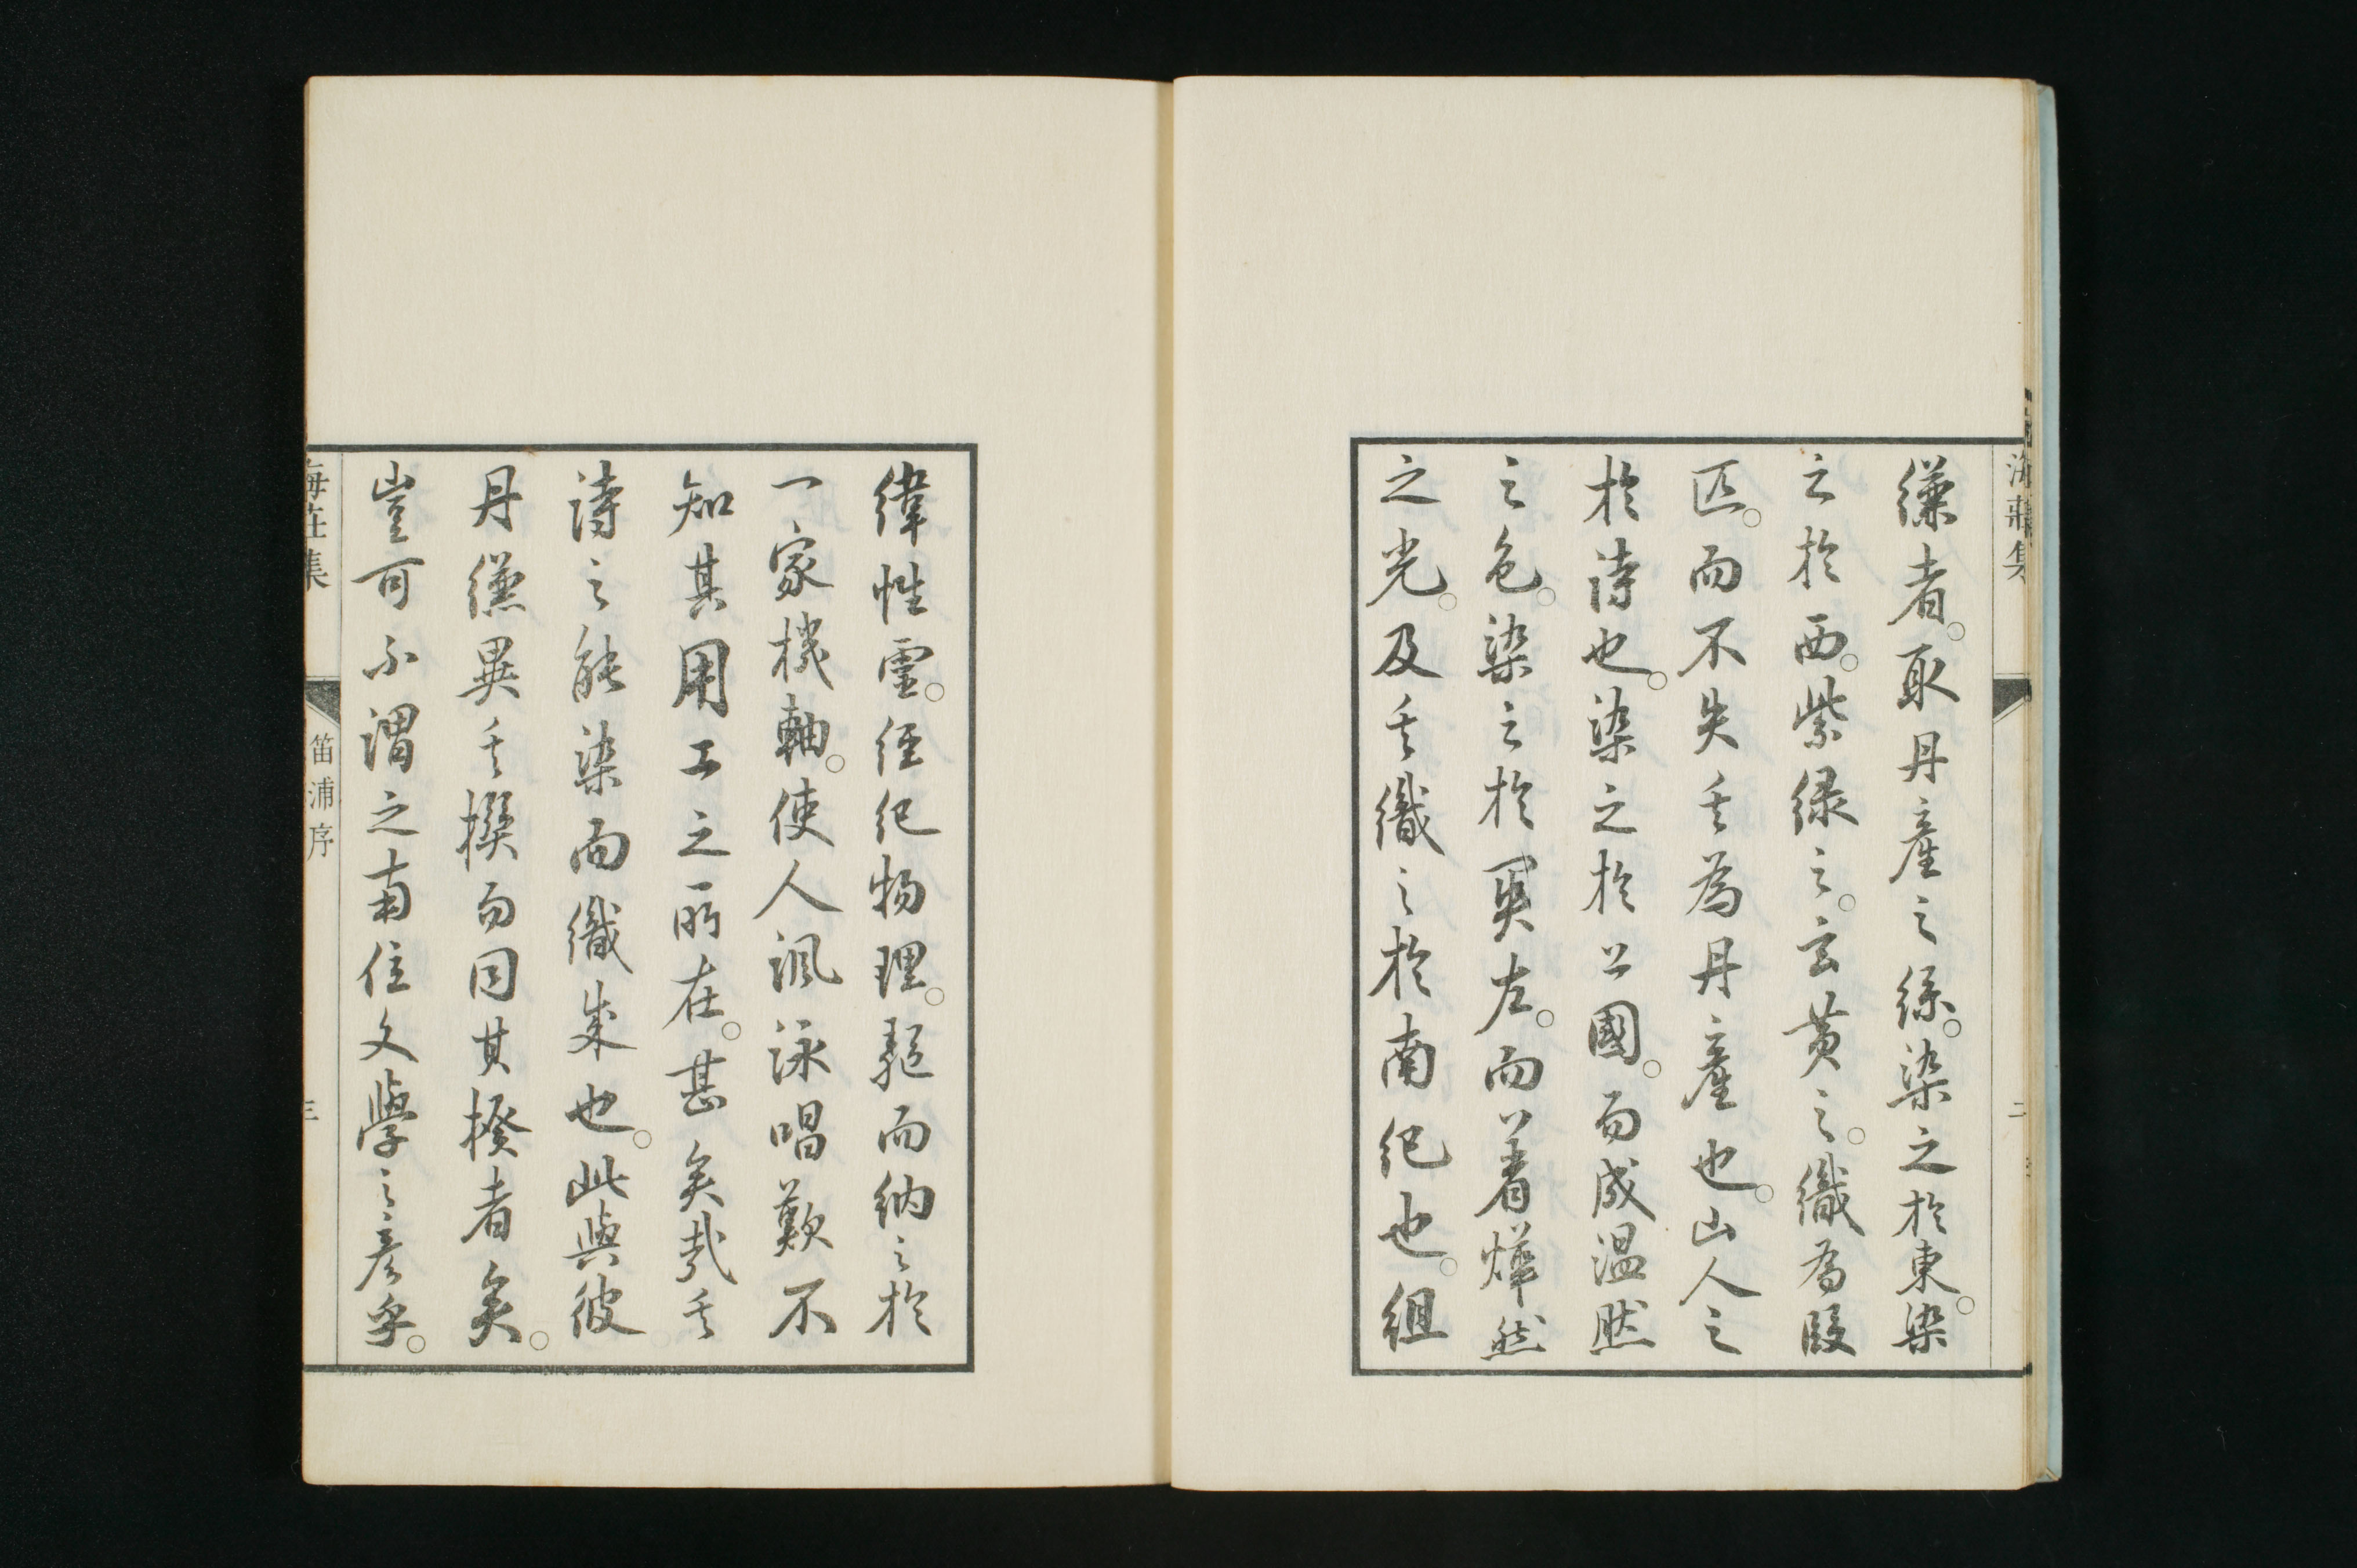 海莊集
二
縑者。取丹產之絲。染之於東。染
之於西。紫綠之。玄黃之。織為段
匹。而不失其為丹產也。山人之
於詩也。染之於上國。而成溫然
之色。染之於閩左。而著燁然
之光。及其織之於南紀也。組
緯性靈。經紀物理。軀而納之於
一家機軸。使人諷詠唱歎不
知其用工之所在。甚矣哉其
詩之能染而織來也。此與彼
丹縑異其撰而同其揆者矣。
豈可不謂之南位文學之彥乎。
海莊集
笛浦序
三